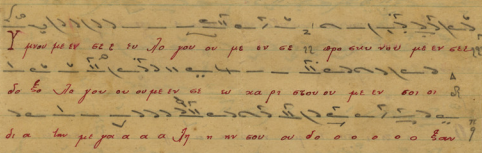 Υ μνου με εν σε ε ευ λο γου ου με εν σε προ σκυ νου με εν σε ε
δο ξο λο γου ου ου με εν σε ω χα ρι στου ου με εν σοι οι
δι α την με γα α α α λη η ην σου ου δο ο ο ο ο ο ξαν